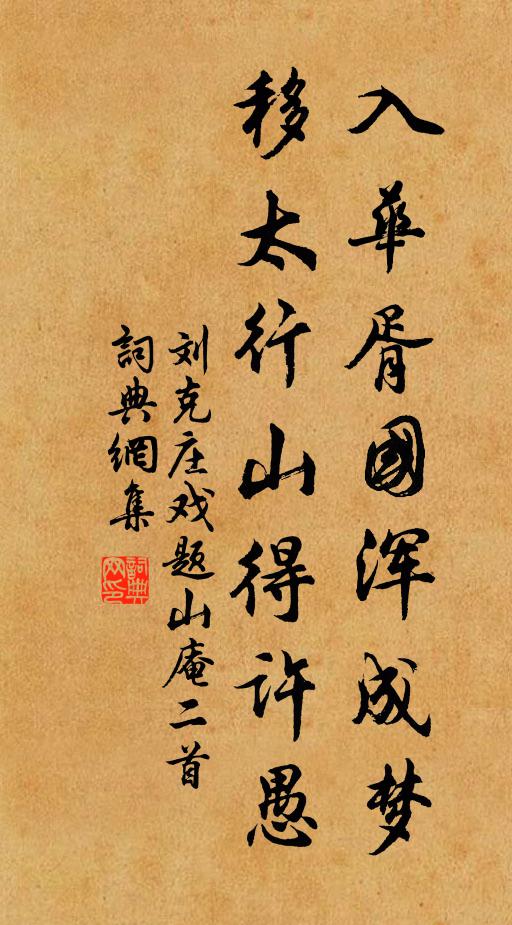 入华胥國浑成梦
移太行山得许愚
刘克庄戏题山庵二首
詞典網集
詞典
网印